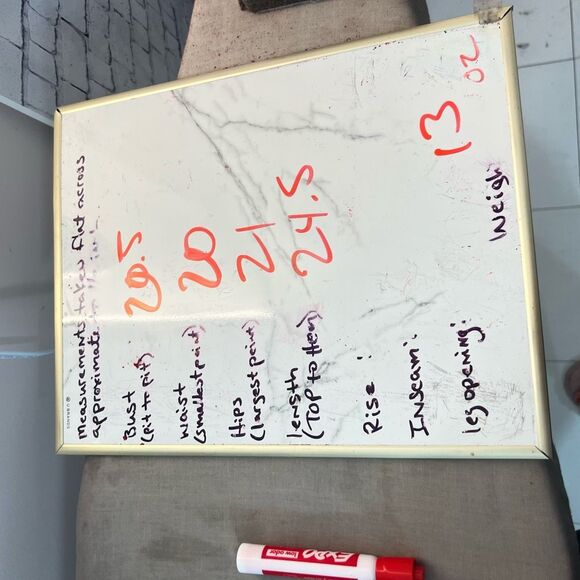 measurements taken flat across
approximate
Bust 20.5
(Pit to pit)
Waist 20
(smallest point)
Hips 21
(largest point)
Length 24.5
(TOP to Hem)
Rise :
Inseam :
leg opening :
Weigh 13 oz
U BRANDS
EXPO
low odor